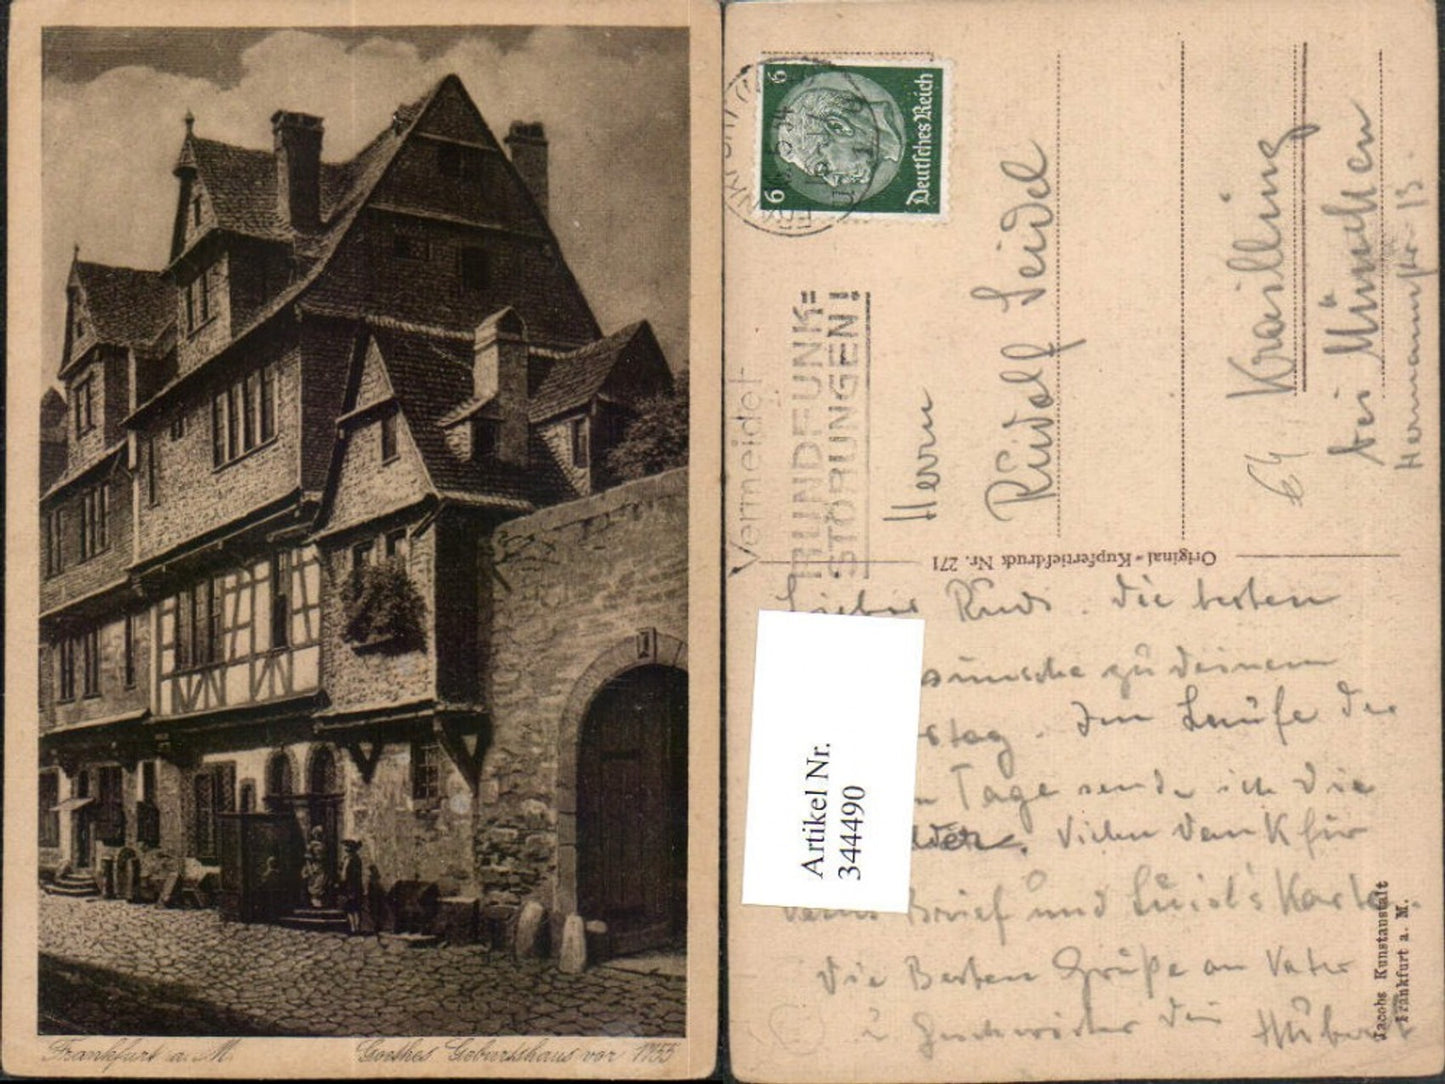 Frankfurt a. M. Goethes Geburtshaus vor 1755
6 6
Deutsches Reich
Vermeidet
RUNDFUNK=
STÖRUNGEN!
Herrn
Rudolf Seidel
Krailling
bei München
Hermannstr. 13
Original-Kupfertiefdruck Nr. 271
Artikel Nr.
344490
Lieber Rudi. Die besten
zu Deinem
Im Laufe der
Tage sende ich Die
Vielen Dank für
Brief und Luisl's Karte.
Die Besten Grüße an Vater
u Geschwister Dein Hubert
Jacobs Kunstanstalt
Frankfurt a. M.